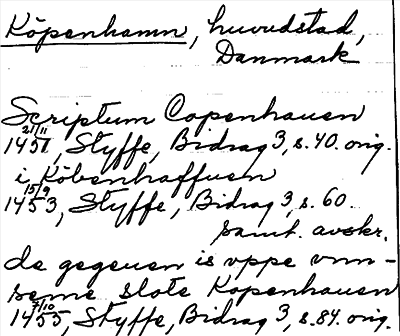 Köpenhamn, huvudstad,
Danmark
Scriptum Copenhauen
21/11
1451, Styffe, Bidrag 3, s. 40. orig.
i Köbenhaffuen
15/9
1453, Styffe, Bidrag 3, s. 60.
samt. avskr.
de gegeuen is vppe vnn-
seme slote Kopenhauen
7/10
1455, Styffe, Bidrag 3, s. 84. orig.